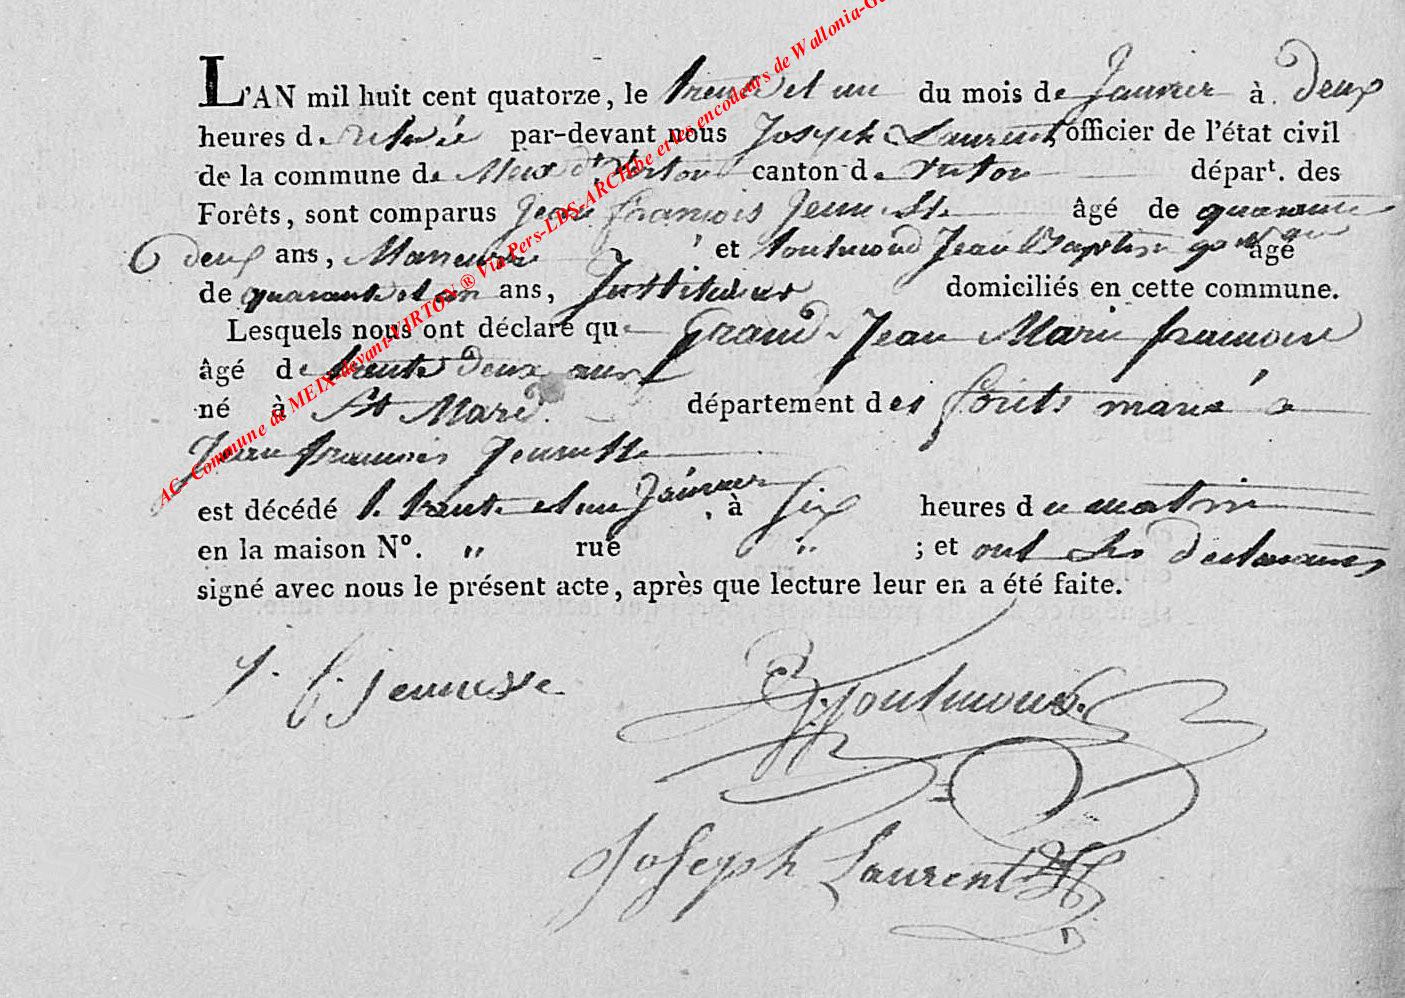 L'AN mil huit cent quatorze, le trente et un du mois de Janvier à deux
heures de relevée par-devant nous Joseph Laurent officier de l'état civil
de la commune de Meix dt Virton canton de virton départ. des
Forêts, sont comparus Jean françois Jeunesse âgé de quarante
deux ans, Manœuvre et toutmond Jean Baptiste âgé
de quarante et un ans, Instituteur domiciliés en cette commune.
Lesquels nous ont déclaré que Grand Jean Marie francoise
âgé de trente deux ans
né à St Mard département des forêts marié à
Jean francois Jeunesse
est décédé le trente et un Janvier, à six heures du matin
en la maison N°. " rue " ; et ont les declarans
signé avec nous le présent acte, après que lecture leur en a été faite.
J. f. jeunesse
J. B. toutmond.
Joseph Laurent
AC- Commune de MEIX-devant-VIRTON ® Via Pers-LDS-ARCH.be et les encodeurs de Wallonia-Ge